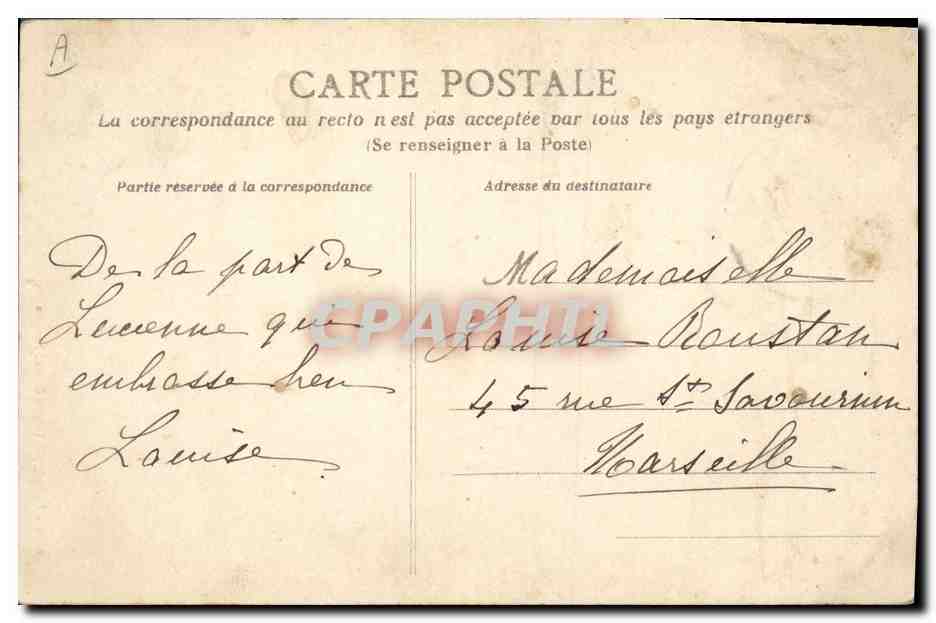 A
CARTE POSTALE
La correspondance au recto n'est pas acceptée par tous les pays étrangers
(Se renseigner à la Poste)
Partie réservée à la correspondance
Adresse du destinataire
De la part de
Lucienne qui
embrasse bien
Louise
Mademoiselle
Louise Roustan
45 rue St Savournin
Marseille
CPAPHIL